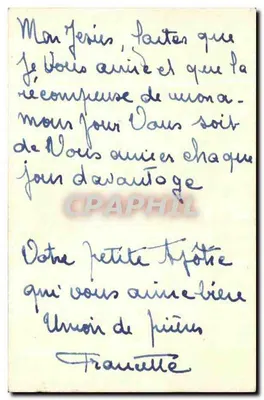 Mon Jésus, faites que
je vous aime et que la
récompense de mon a-
mour pour Vous soit
de Vous aimer chaque
jour davantage
CPAPHIL
Votre petite Apôtre
qui vous aime bien
Union de prières
Francette